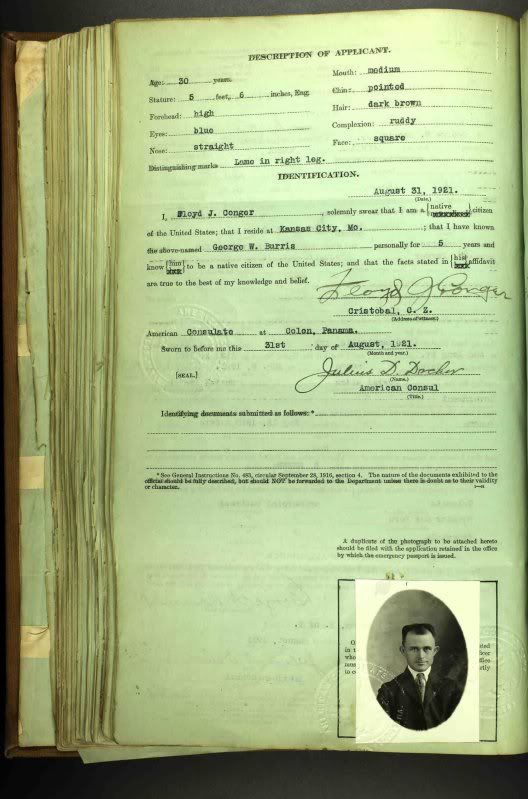 DESCRIPTION OF APPLICANT.
Age: 30 years.
Mouth: medium
Stature: 5 feet, 6 inches, Eng.
Chin: pointed
Forehead: high
Hair: dark brown
Eyes: blue
Complexion: ruddy
Nose: straight
Face: square
Distinguishing marks Lame in right leg.
IDENTIFICATION.
August 31, 1921.
(Date.)
I, Floyd J. Conger, solemnly swear that I am a {native} citizen
of the United States; that I reside at Kansas City, Mo.; that I have known
the above-named George W. Burris personally for 5 years and
know {him} to be a native citizen of the United States; and that the facts stated in {his} affidavit
are true to the best of my knowledge and belief.
Floyd J Conger
Cristobal, C. Z.
(Address of witness.)
American Consulate at Colon, Panama.
Sworn to before me this 31st day of August, 1921.
(Month and year.)
[SEAL.]
Julius D. Dreher
(Name.)
American Consul
(Title.)
Identifying documents submitted as follows: *
* See General Instructions No. 483, circular September 28, 1916, section 4. The nature of the documents exhibited to the
official should be fully described, but should NOT be forwarded to the Department unless there is doubt as to their validity
or character.
A duplicate of the photograph to be attached hereto
should be filed with the application retained in the office
by which the emergency passport is issued.